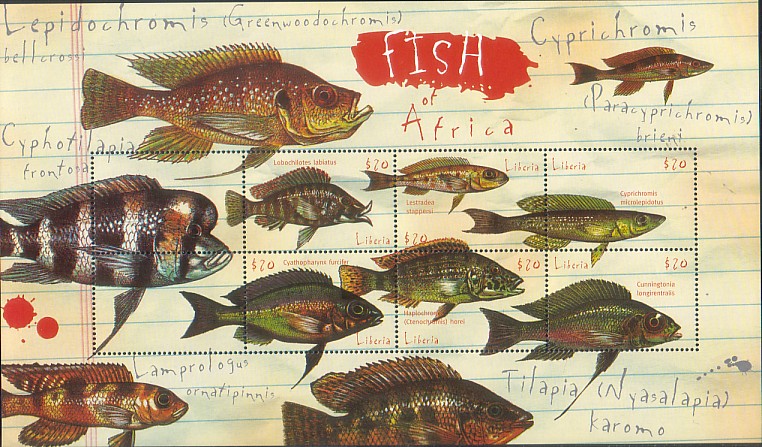 Lepidochromis (Greenwoodochromis)
bellcrossi
FISH
of
Africa
Cyprichromis
(Paracyprichromis)
brieni
Cyphotilapia
frontosa
Lobochilotes labiatus
$20
Liberia
$20
Liberia
Lestradea
stappersi
Liberia
$20
Cyprichromis
microlepidotus
Cyathopharynx furcifer
$20
Liberia
$20
Haplochromis
(Ctenochromis) horei
Liberia
Liberia
$20
Cunningtonia
longiventralis
Lamprologus
ornatipinnis
Tilapia (Nyasalapia)
karomo